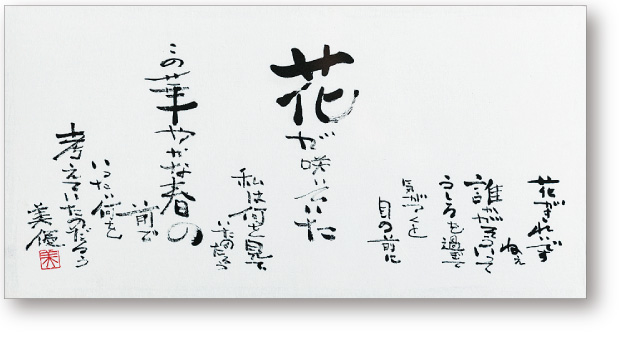 花がきれいです
ねぇ
誰かが言って
うしろを過ぎて
気がつくと
目の前に
花が咲いていた
私は何を見て
いたのだろう
この華やかな春の
前で
いったい何を
考えていたのだろう
美優